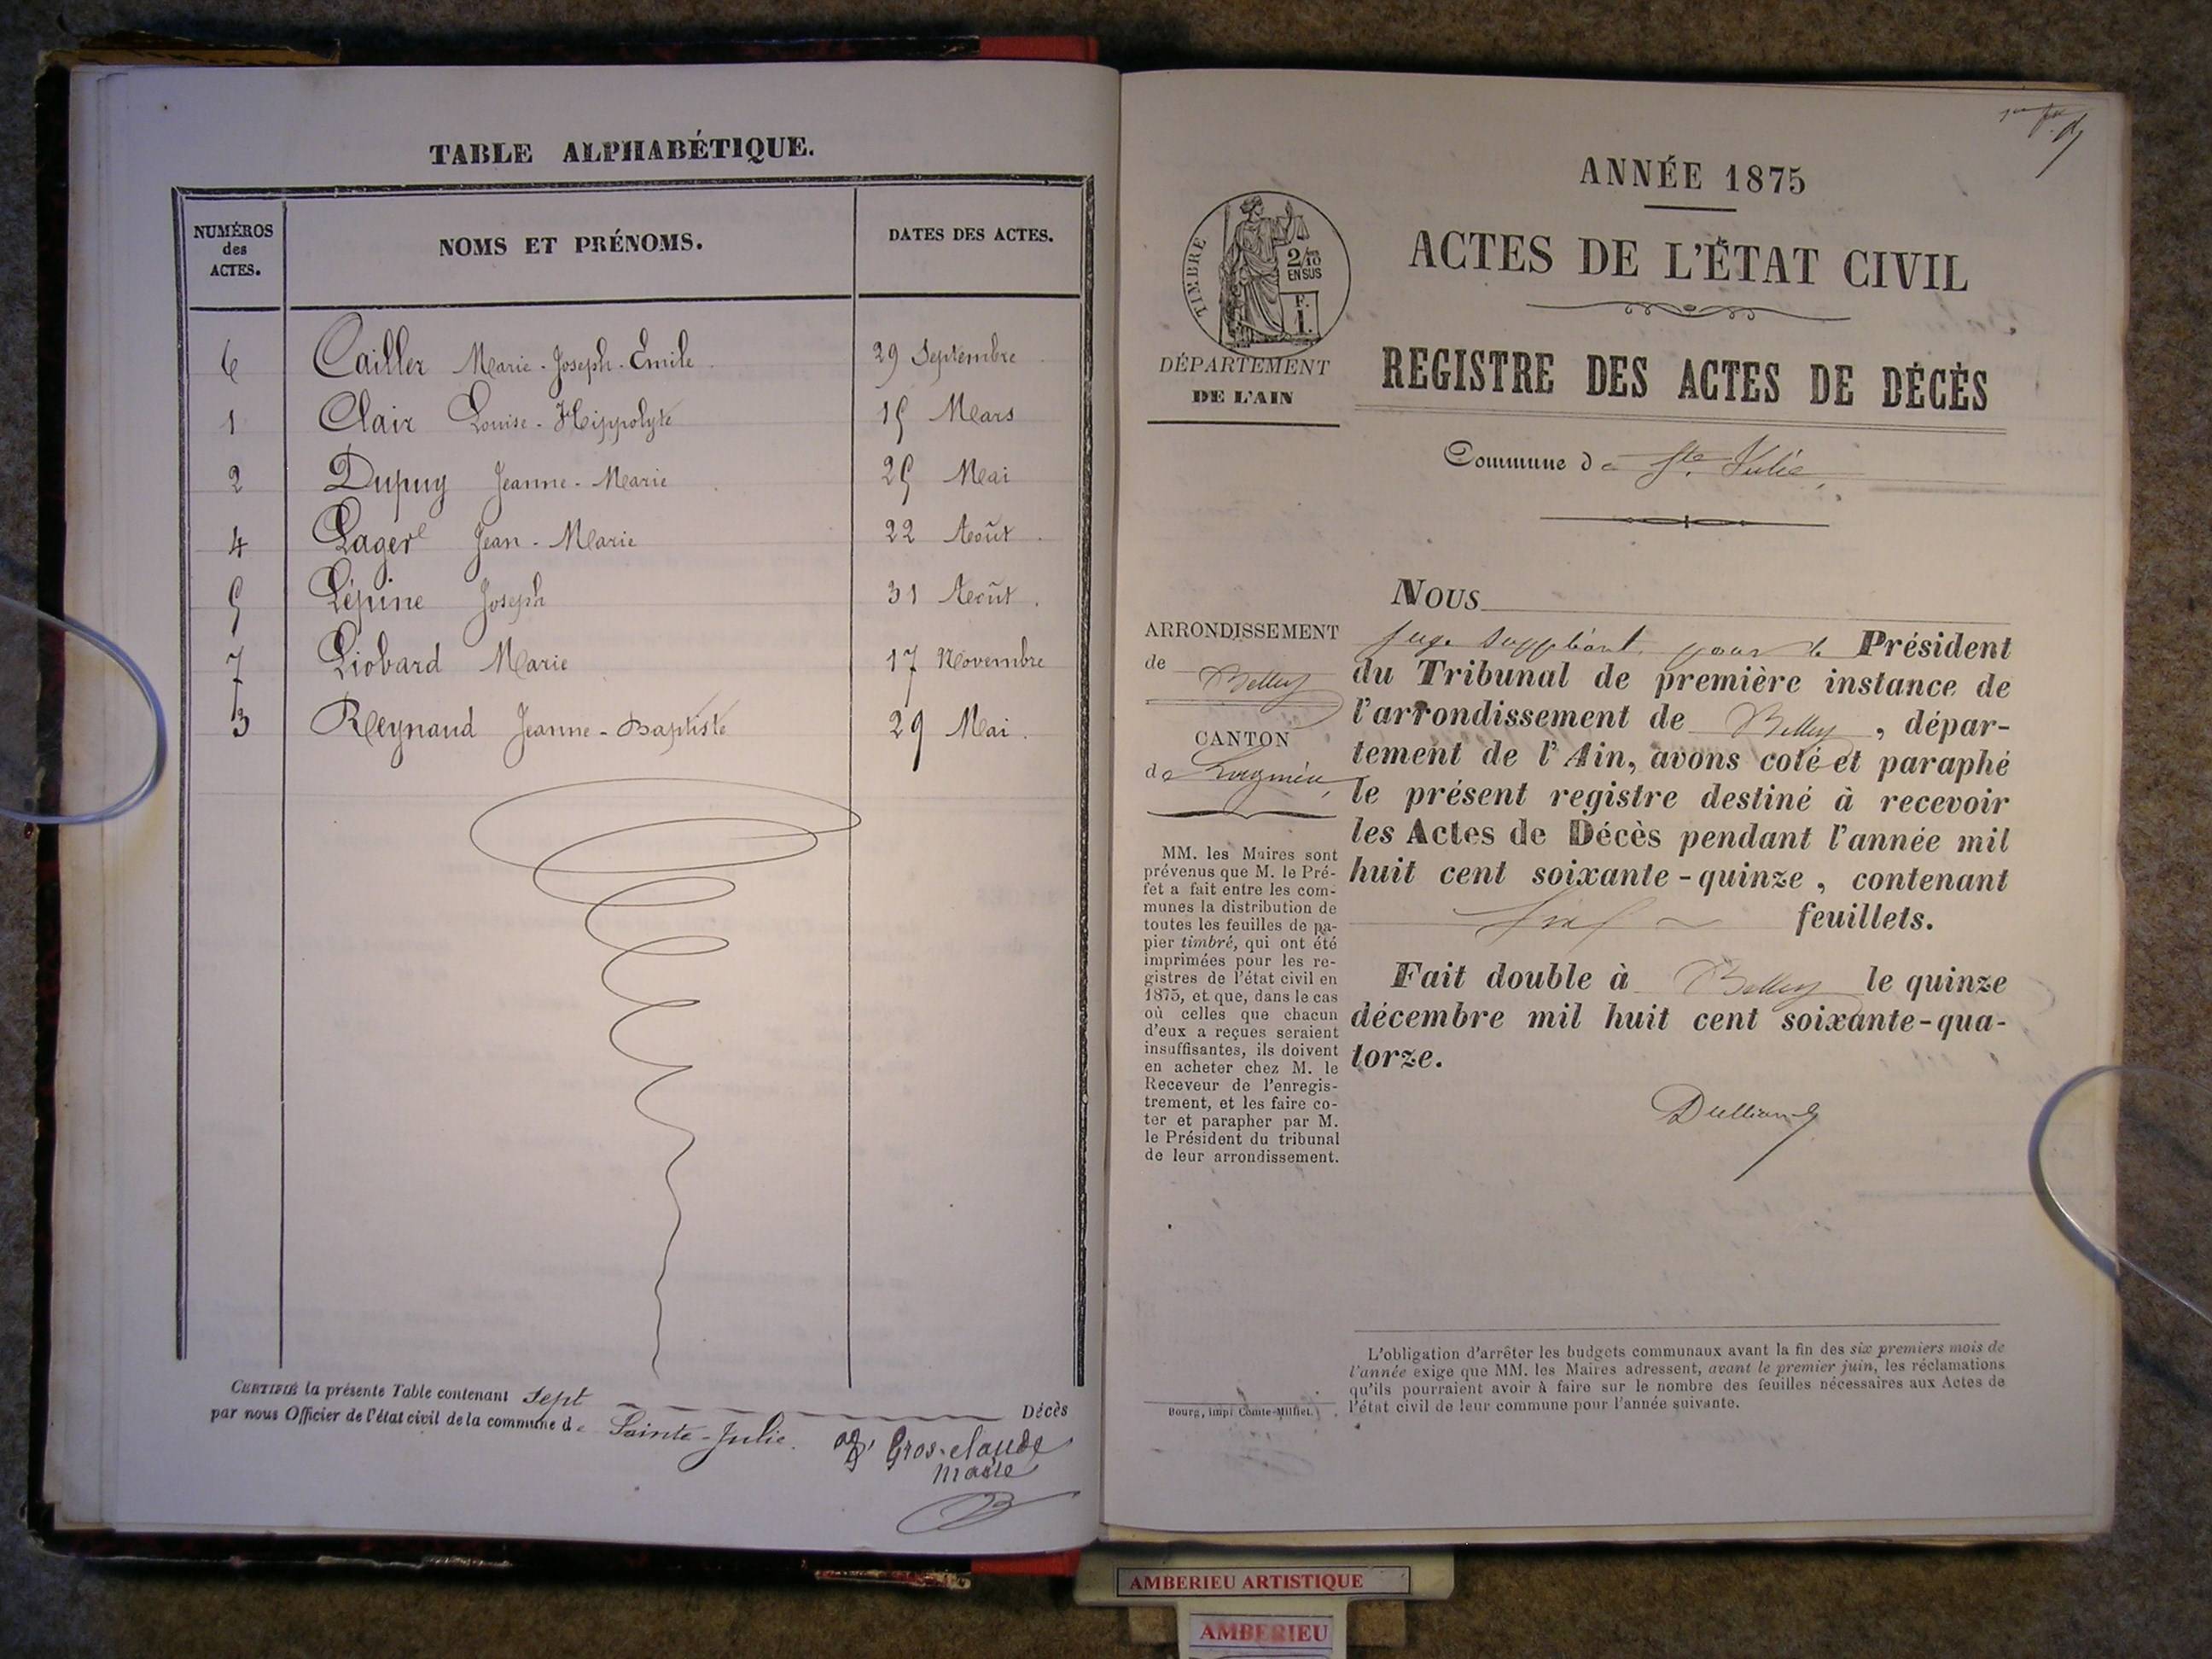 TABLE ALPHABÉTIQUE.
NUMÉROS des ACTES. NOMS ET PRÉNOMS. DATES DES ACTES.
6 Cailler Marie-Joseph-Emile 29 Septembre
1 Clair Louise-Hippolyte 15 Mars
2 Dupuy Jeanne-Marie 25 Mai
4 Lager Jean-Marie 22 Août
5 Lépine Joseph 31 Août
7 Liobard Marie 17 Novembre
3 Reynaud Jeanne-Baptiste 29 Mai
CERTIFIÉ la présente Table contenant Sept Décès
par nous Officier de l'état civil de la commune de Sainte-Julie.
Gros-claude
maire
ANNÉE 1875
ACTES DE L'ÉTAT CIVIL
TIMBRE
2/10
EN SUS
F.
1.
DÉPARTEMENT
DE L'AIN
REGISTRE DES ACTES DE DÉCÈS
Commune de Ste Julie,
ARRONDISSEMENT
de Belley
CANTON
de Lagnieu,
MM. les Maires sont
prévenus que M. le Pré-
fet a fait entre les com-
munes la distribution de
toutes les feuilles de pa-
pier timbré, qui ont été
imprimées pour les re-
gistres de l'état civil en
1875, et que, dans le cas
où celles que chacun
d'eux a reçues seraient
insuffisantes, ils doivent
en acheter chez M. le
Receveur de l'enregis-
trement, et les faire co-
ter et parapher par M.
le Président du tribunal
de leur arrondissement.
Bourg, impr. Comte-Milliet.
NOUS
juge suppléant pour le Président
du Tribunal de première instance de
l'arrondissement de Belley, dépar-
tement de l'Ain, avons coté et paraphé
le présent registre destiné à recevoir
les Actes de Décès pendant l'année mil
huit cent soixante-quinze, contenant
feuillets.
Fait double à Belley le quinze
décembre mil huit cent soixante-qua-
torze.
L'obligation d'arrêter les budgets communaux avant la fin des six premiers mois de
l'année exige que MM. les Maires adressent, avant le premier juin, les réclamations
qu'ils pourraient avoir à faire sur le nombre des feuilles nécessaires aux Actes de
l'état civil de leur commune pour l'année suivante.
AMBERIEU ARTISTIQUE
AMBERIEU